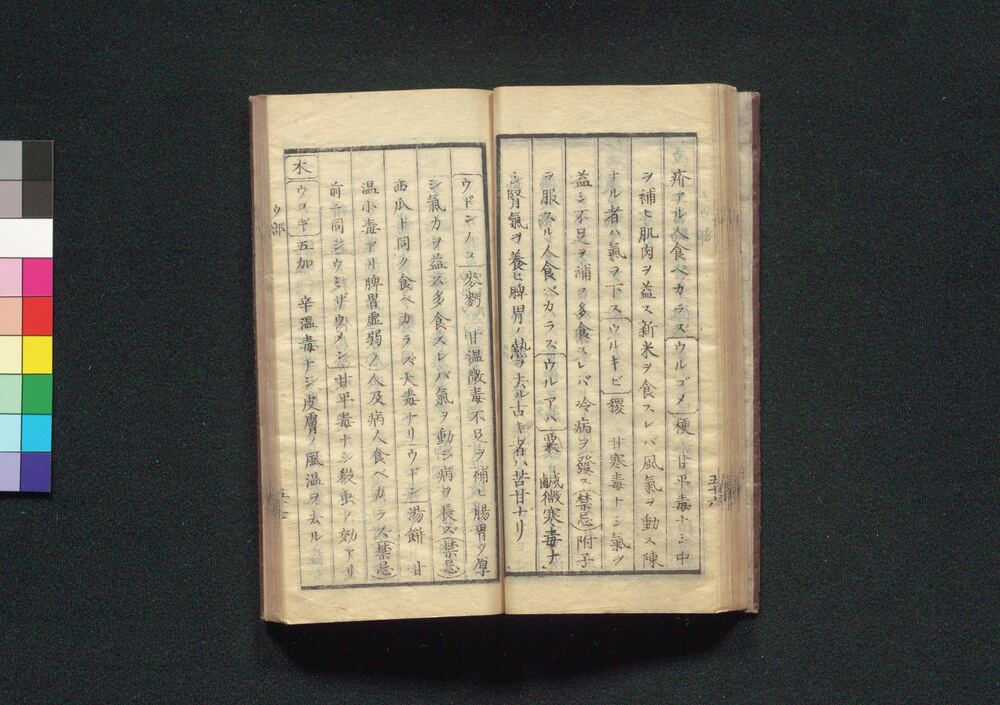 疥アル人食ベカラズウルゴメ粳甘平毒ナシ中
ヲ補ヒ肌肉ヲ益ス新米ヲ食スレバ風氣ヲ動ス陳
ナル者ハ氣ヲ下スウルキビ稷甘寒毒ナシ氣ヲ
益シ不足ヲ補フ多食スレバ冷病ヲ發ス禁忌附子
ヲ服スル人食ベカラズウルアハ粟鹹微寒毒ナ
シ腎氣ヲ養ヒ脾胃ノ熱ヲ去ル古キ者ハ苦甘ナリ
五十六
ウドンノコ麥麪甘温微毒不足ヲ補ヒ腸胃ヲ厚
シ氣力ヲ益ス多食スレバ氣ヲ動シ病ヲ長ズ禁忌
西瓜ト同ク食ベカラズ大毒ナリウドン湯餅甘
温小毒アリ脾胃虚弱ノ人及病人食ベカラズ禁忌
前ニ同ジウンザウメン甘平毒ナシ殺虫ノ効アリ
木ウコギ五加辛温毒ナシ皮膚ノ風温ヲ去ル
ウ部